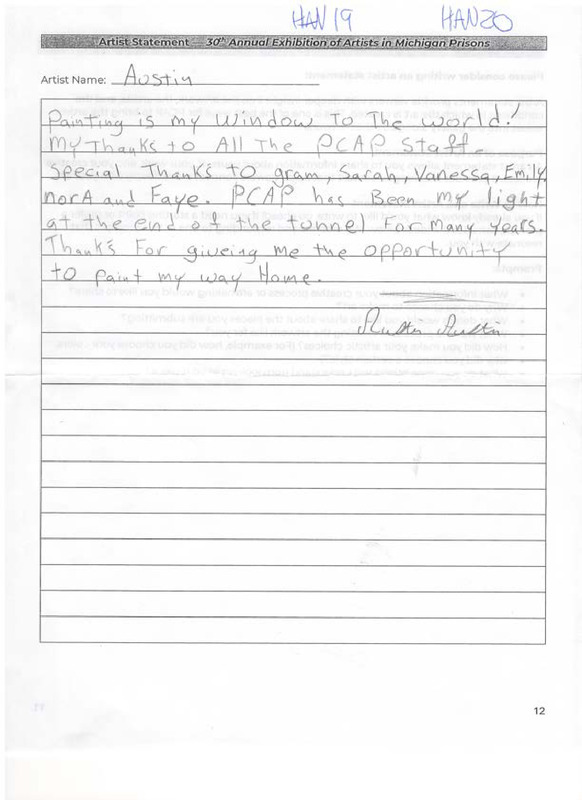 HAN 19 HAN20
Artist Statement – 30th Annual Exhibition of Artists in Michigan Prisons
Artist Name: Austin
Painting is my window To The world!
My Thanks to All The PCAP Staff.
Special Thanks to gram, Sarah, Vanessa, Emily
norA and Faye. PCAP has Been my light
at the end of the tunnel For many years.
Thanks For giveing me the opportunity
to paint my way Home.
Austin Austin
12